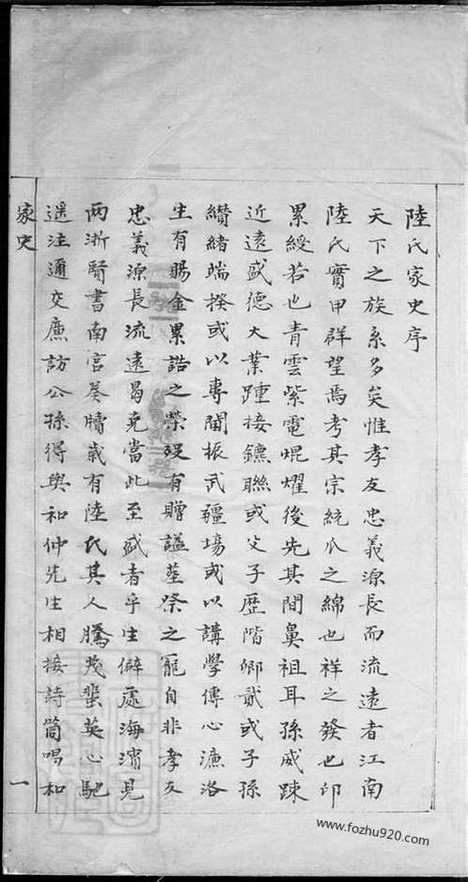 陸氏家史序
天下之族系多矣惟孝友忠義源長而流遠者江南
陸氏實甲群望焉考其宗統瓜之綿也祥之發也印
累綬若也青雲紫電焜燿後先其間鼻祖耳孫威踈
近遠盛德大業踵接鑣聯或父子歷階卿貳或子孫
纘緒端揆或以專閫振武疆場或以講學傳心濂洛
生有賜金累誥之榮歿有贈謚塋祭之寵自非孝友
忠義源長流遠曷克當此至盛者乎生僻處海濱見
兩浙賢書南宮奏牘歲有陸氏其人騰茂蜚英心馳
遥注適交廉訪公孫得與和仲先生相接詩筒唱和
家史
一
www.fozhu920.com